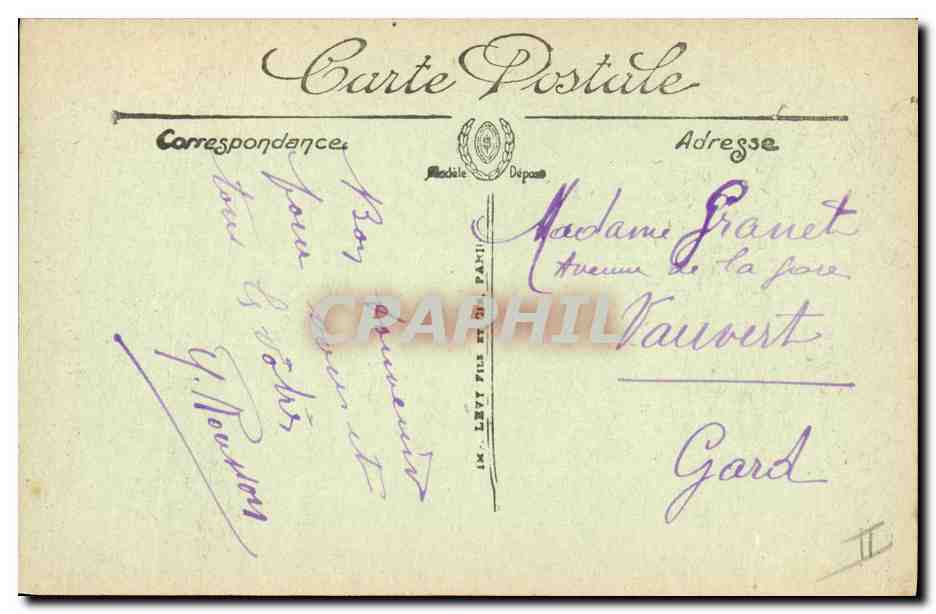 Carte Postale
Correspondance
Adresse
Modèle Déposé
Bon souvenir
pour vous et
tous les vôtres
Y. Rousson
IMP. LÉVY FILS ET CIE, PARIS
Madame Granet
Avenue de la gare
Vauvert
Gard
II
CRAPHIL